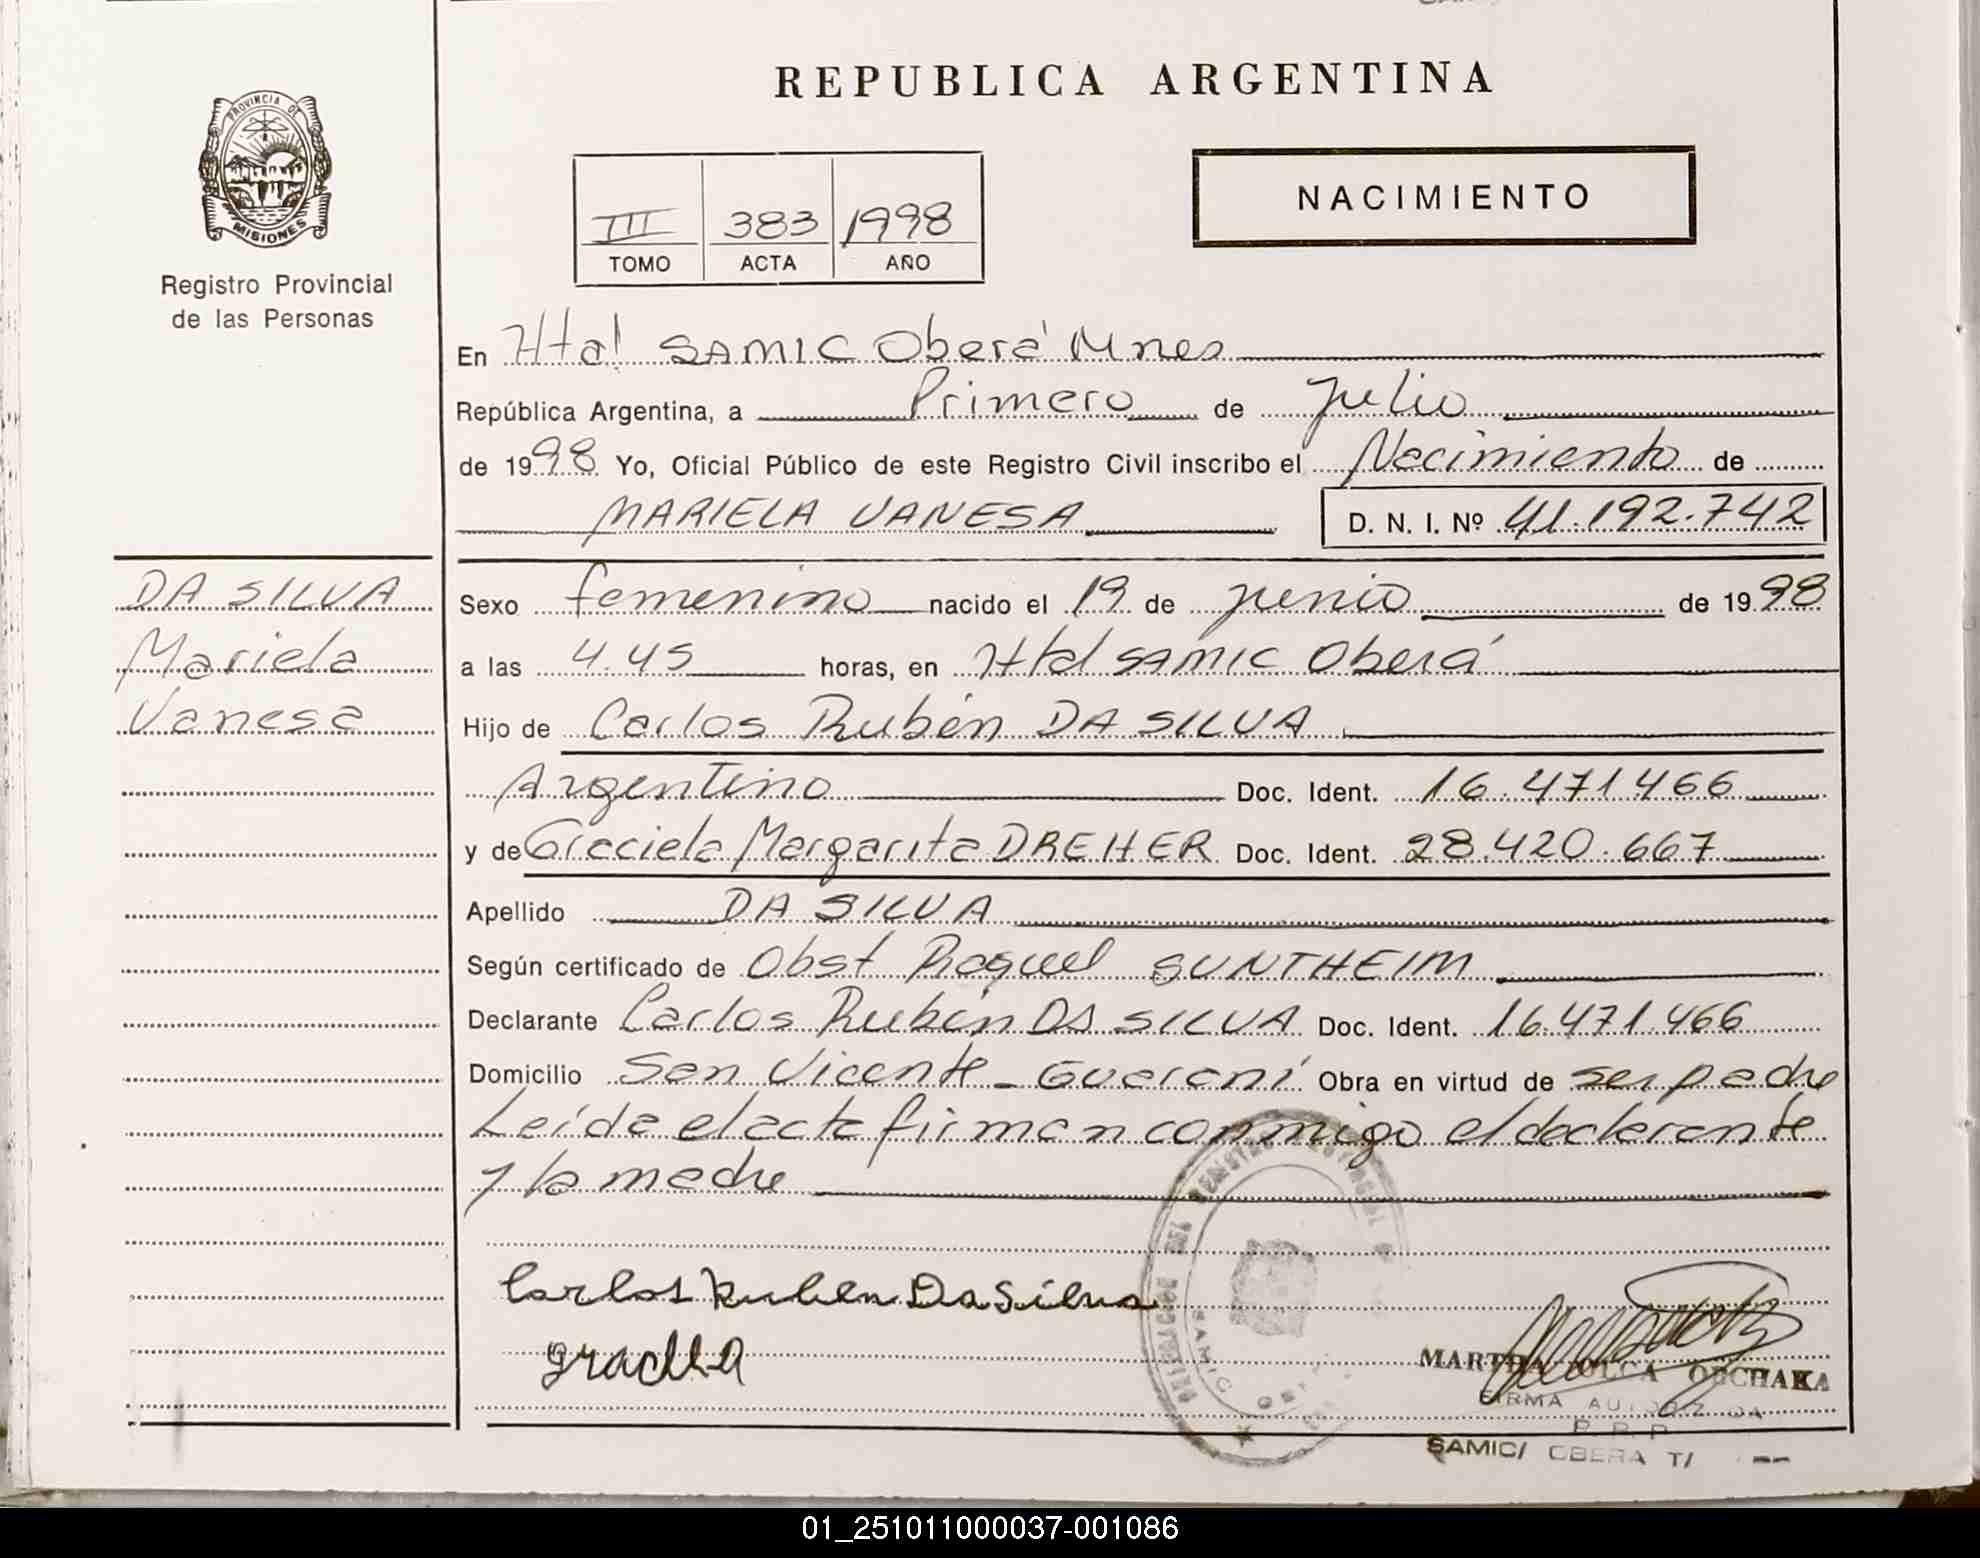 REPUBLICA ARGENTINA
PROVINCIA DE
MISIONES
Registro Provincial
de las Personas
III 383 1998
TOMO ACTA AÑO
NACIMIENTO
En Htal SAMIC Oberá Mnes
República Argentina, a Primero de Julio
de 1998 Yo, Oficial Público de este Registro Civil inscribo el Nacimiento de
MARIELA VANESA D. N. I. Nº 41.192.742
DA SILVA
Mariela
Vanesa
Sexo femenino nacido el 19 de junio de 1998
a las 4.45 horas, en Htal SAMIC Oberá
Hijo de Carlos Rubén DA SILVA
Argentino Doc. Ident. 16.471466
y de Graciela Margarita DREHER Doc. Ident. 28.420.667
Apellido DA SILVA
Según certificado de Obst Raquel SUNTHEIM
Declarante Carlos Rubén DA SILVA Doc. Ident. 16.471.466
Domicilio San Vicente - Guaraní Obra en virtud de ser padre
Leída el acta firman conmigo el declarante
y la madre
Carlos Ruben Da Silva
MARTHA OLGA
FIRMA AUTORIZADA
SAMIC/ OBERA
01_251011000037-001086